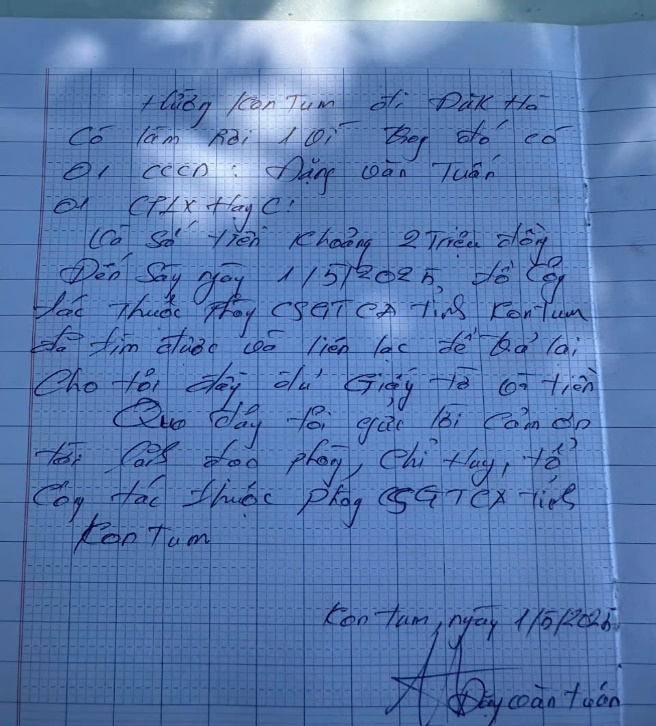 Hướng Kon Tum đi Đăk Hà
Có làm rơi 1 ví trog đó có
01 CCCD: Đặng Văn Tuấn
01 GPLX Hạng C:
Có số tiền khoảng 2 Triệu đồng
Đến Sáy ngày 1/5/2025, tổ Côg
tác thuộc phòg CSGTCA tỉnh Kon Tum
đã tìm được và liên lạc để trả lại
Cho tôi đầy đủ Giấy tờ và tiền
Qua đây tôi gửi lời cảm ơn
tới Lãnh đạo phòg, Chỉ Huy, tổ
Côg tác thuộc phòg CSGTCA tỉnh
Kon Tum
Kon Tum, ngày 1/5/2025
Đặng Văn Tuấn